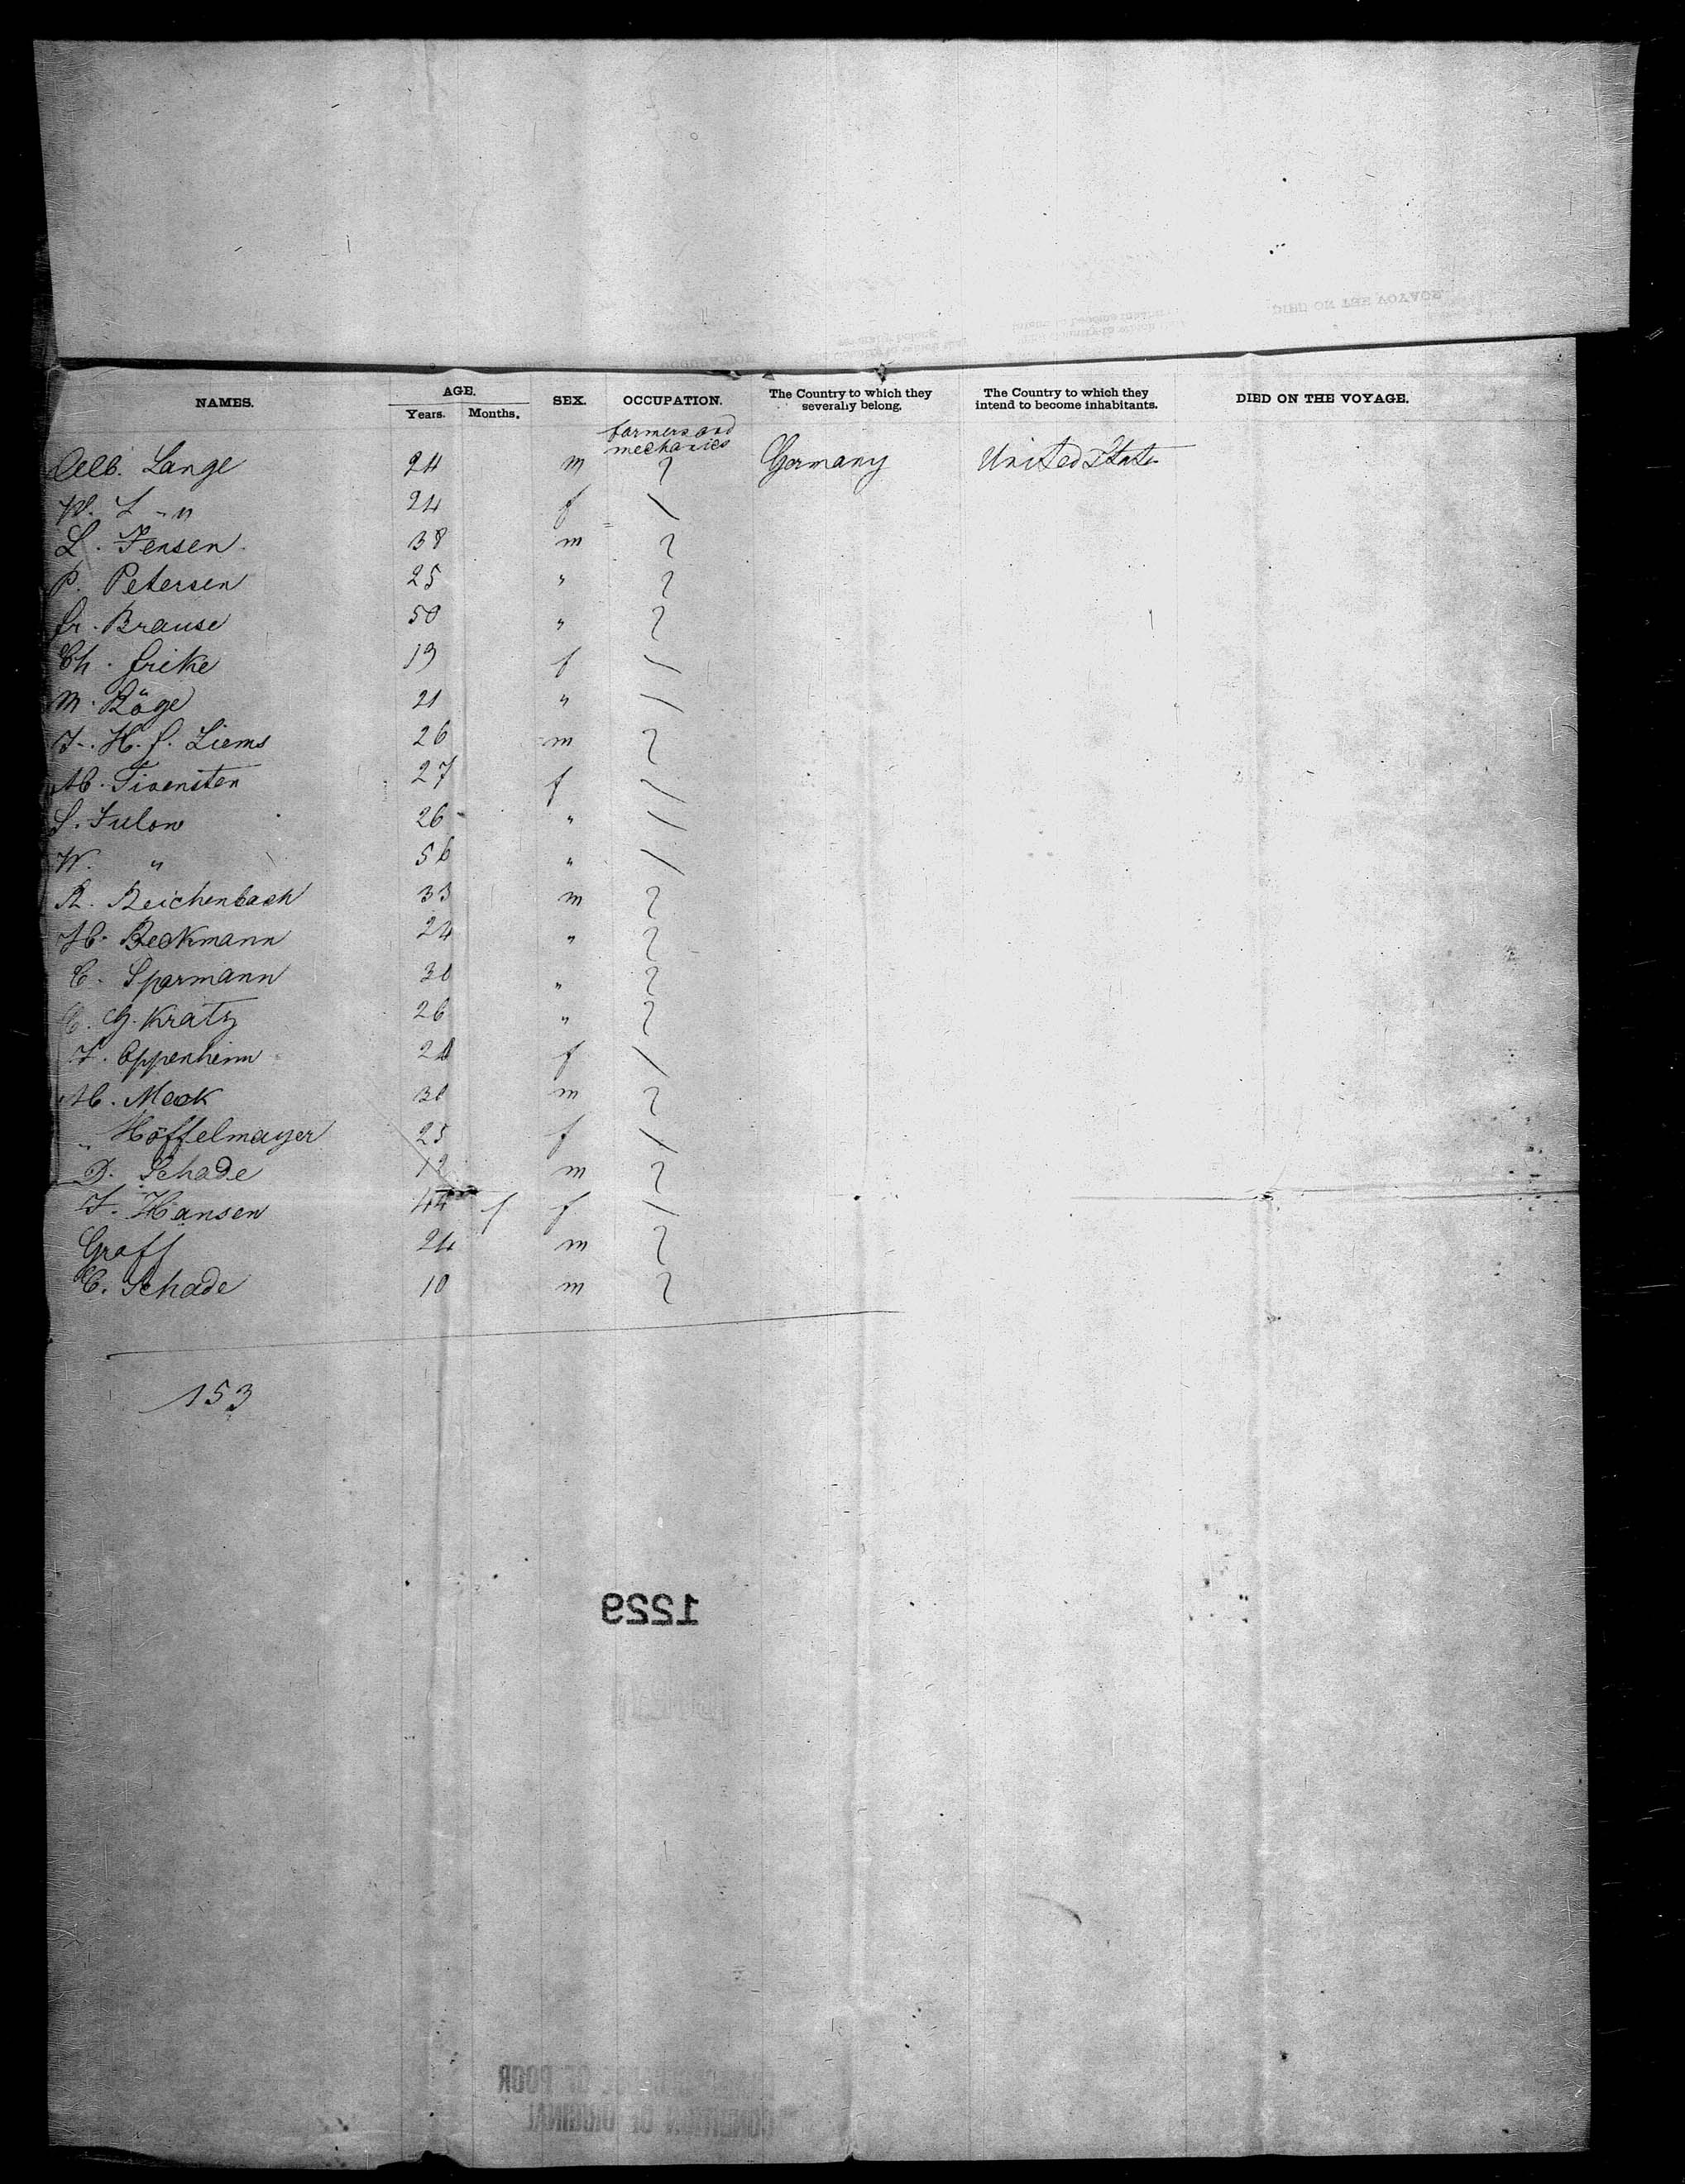 NAMES. AGE. Years. Months. SEX. OCCUPATION. The Country to which they severally belong. The Country to which they intend to become inhabitants. DIED ON THE VOYAGE.
farmers and
mechanics
Alb. Lange 24 m Germany United States
W. L - " 24 f
L. Jensen 38 m
P. Petersen 25 "
Fr. Brause 50 "
Ch. Frike 19 f
M. Röge 21 "
J. H. F. Liems 26 m
27 f
S. Julow 26 "
W. " 56 "
R. Reichenbach 33 m
H. Beckmann 24 "
C. Sparmann 30 "
C. G. Kratz 26 "
J. Oppenheim f
M. Mack 30 m
" Höffelmayer 25 f
D. Schade 12 m
J. Hansen 44 f
Graff 24 m
C. Schade 10 m
153
1229
POOR
CONDITION OF ORIGINAL